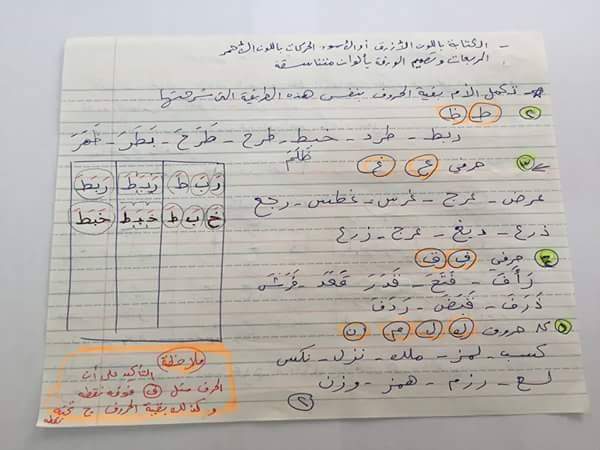 - الكتابة باللون الأزرق أو الأسود الحركات باللون الأحمر
المربعات وتصميم الورقة بألوان متناسقة
تكمل الأم بقية الحروف بنفس هذه الطريقة التي شرحتها
٢ ط ظ
ربط - طرد - خبط - طرح - طَرَحَ - بَطَرَ - ظَهَرَ
ظَلَمَ
٣ حرفي ع غ
عرض - عرج - غرس - غطس - رجع
ذرع - دبغ - عرج - زرع
٤ حرفي ف ق
رَأَفَ - فَتَحَ - قَدَرَ قَعَدَ - فَرَشَ
ذَرَفَ - قَبَضَ - رَدَفَ
حروف ك ل م ن
كسب - لمز - ملك - نزل - نكس
لسع - رزم - همز - وزن
رَ بَ ط رَبَط رَبَط
خَ بَ ط خَبَط خَبَط
ملاحظة
التأكيد على أن
الحرف مثل ف فوقه نقطة
وكذلك بقية الحروف ج تحته نقطة
٢